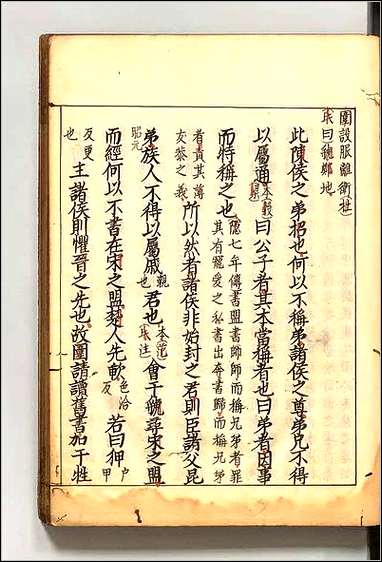 圍設服離衛〔杜〕
〔氏〕曰虢鄭地
此陳侯之弟招也何以不稱弟諸侯之尊弟兄不得
以屬通〔本穀梁〕曰公子者其本當稱者也曰弟者因事
而特稱之也隱七年傳書盟書帥師而稱兄弟者罪
其有寵愛之私書出奔書歸而稱兄弟
者責其薄
友恭之義所以然者諸侯非始封之君則臣諸父昆
弟族人不得以屬戚君也〔本范氏注〕會于虢尋宋之盟
昭元
而經何以不書在宋之盟楚人先歃色洽反若曰狎戶甲
反更
也主諸侯則懼晉之先也故圍請讀舊書加于牲